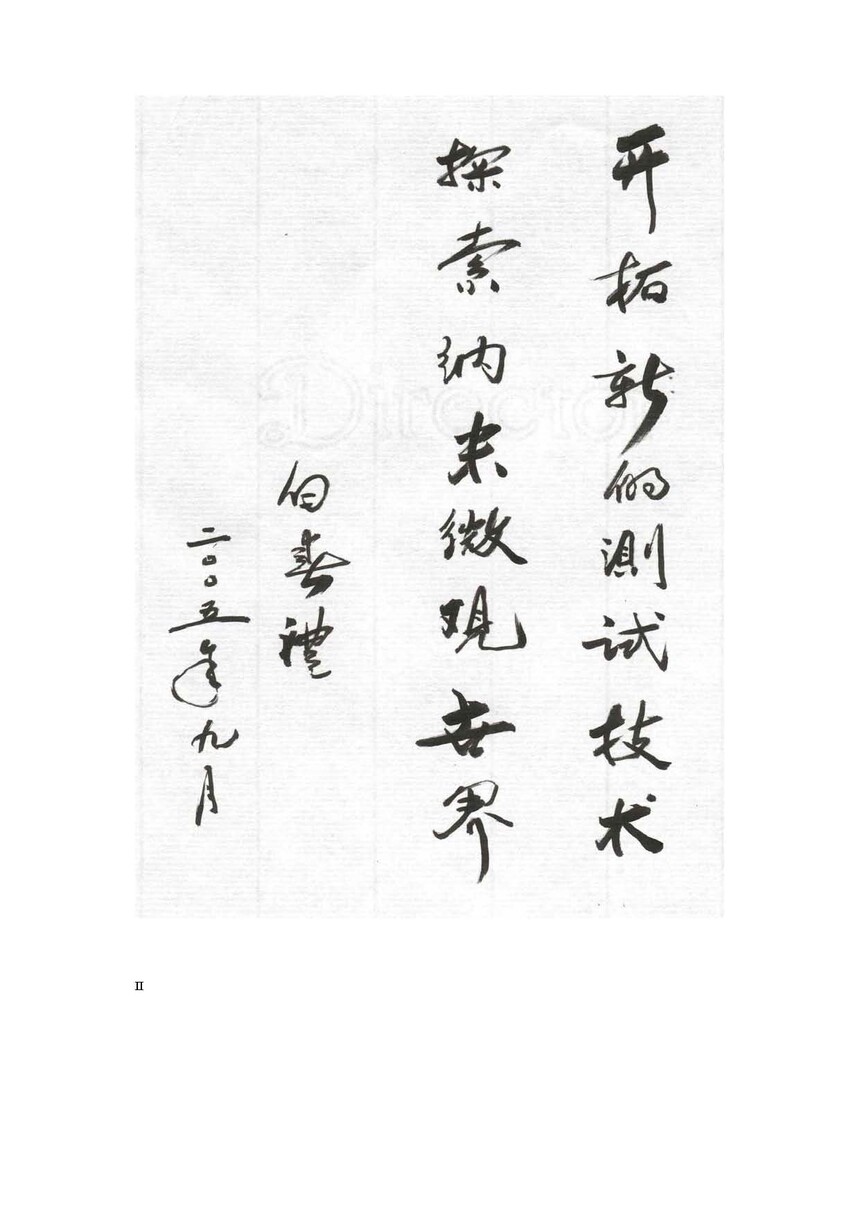 开拓新的测试技术
探索纳米微观世界
白春礼
二〇〇五年九月
Director
II